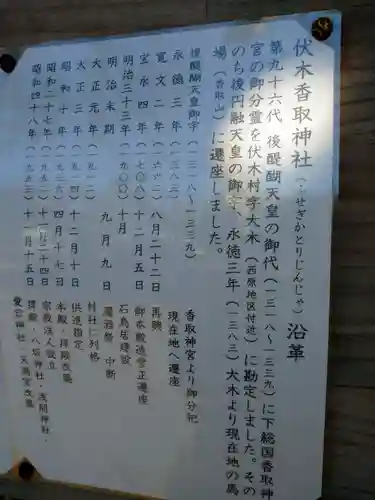 伏木香取神社（ふせぎかとりじんじゃ）沿革
第九十六代 後醍醐天皇の御代（一三一八〜一三三九）に下総国香取神
宮の御分霊を伏木村字大木（西原地区付近）に勘定しました。その
のち後円融天皇の御宇、永徳三年（一三八三）大木より現在地の馬
場（香取山）に遷座しました。
後醍醐天皇御宇（一三一八〜一三三九） 香取神宮より御分祀
永徳三年（一三八三） 現在地へ遷座
寛文二年（一六六二）八月二十二日 再興
宝永四年（一七〇八）十一月十五日 御本殿造営正遷座
明治三十三年（一九〇〇）十月 石鳥居建設
明治末期 九月九日 濁酒祭 中断
大正元年（一九一二） 村社に列格
大正三年（一九一四）十二月十日 供進指定
昭和十年 四月十七日 本殿・拝殿改築
昭和二十七年（一九五二）十二月二十四日 宗教法人設立
昭和四十八年 十一月十五日 拝殿・八坂神社・浅間神社・
愛宕神社・天満宮改築